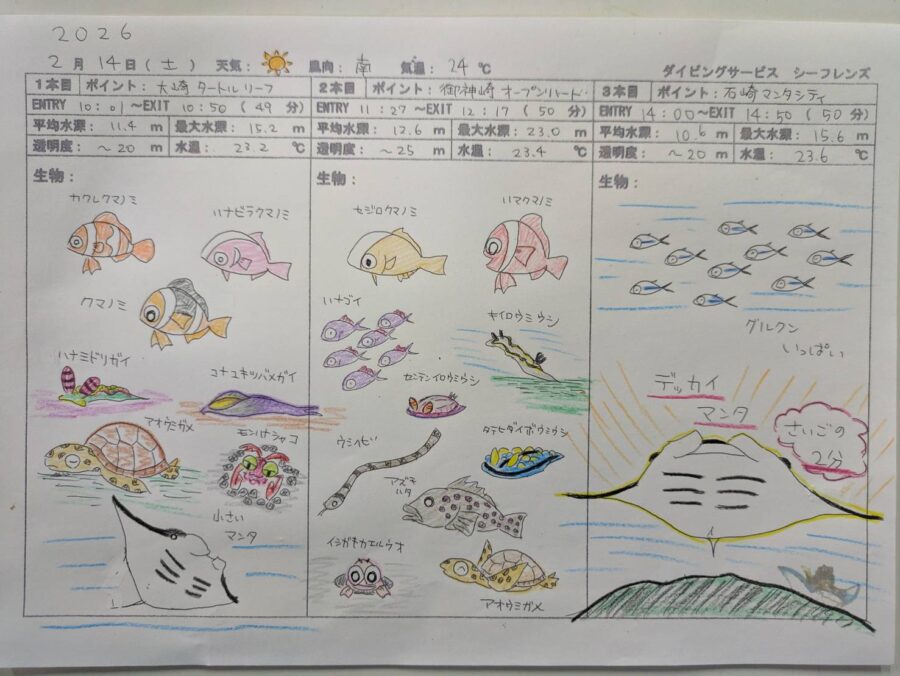 2026
2月 14日(土) 天気: 風向: 南 気温: 24℃
ダイビングサービス シーフレンズ
1本目 ポイント: 大崎 タートルリーフ
ENTRY 10:01~EXIT 10:50 (49 分)
平均水深: 11.4 m 最大水深: 15.2 m
透明度: ~20 m 水温: 23.2 ℃
生物:
カクレクマノミ
ハナビラクマノミ
クマノミ
ハナミドリガイ
コナユキツバメガイ
アオウミガメ
モンハナシャコ
小さい
マンタ
2本目 ポイント: 御神崎 オープンハート
ENTRY 11:27~EXIT 12:17 (50 分)
平均水深: 12.6 m 最大水深: 23.0 m
透明度: ~25 m 水温: 23.4 ℃
生物:
セジロクマノミ
ハマクマノミ
ハナゴイ
キイロウミウシ
センテンイロウミウシ
ウミヘビ
タテヒダイボウミウシ
アズキ
ハタ
イシガキカエルウオ
アオウミガメ
3本目 ポイント: 石崎マンタシティ
ENTRY 14:00~EXIT 14:50 (50 分)
平均水深: 10.6 m 最大水深: 15.6 m
透明度: ~20 m 水温: 23.6 ℃
生物:
グルクン
いっぱい
デッカイ
マンタ
さいごの
2分